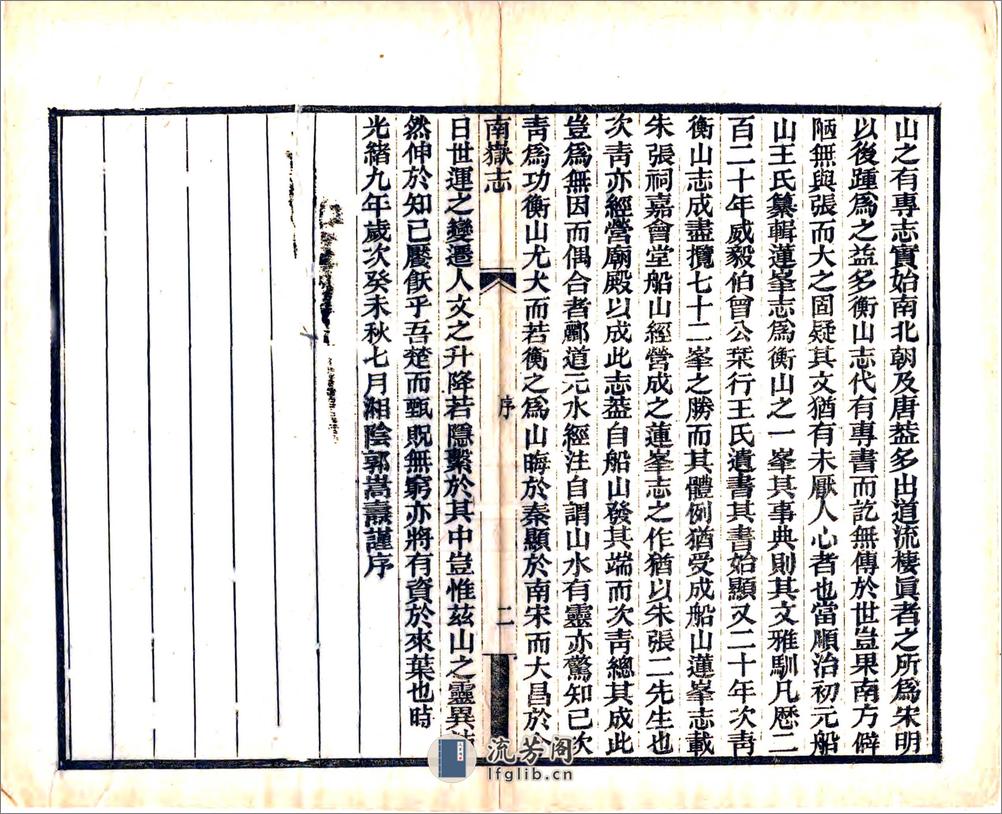 山之有專志實始南北朝及唐葢多出道流棲眞者之所爲宋明
以後踵爲之益多衡山志代有專書而訖無傳於世豈果南方僻
陋無與張而大之固疑其文猶有未厭人心者也當順治初元船
山王氏纂輯蓮峯志爲衡山之一峯其事典則其文雅馴凡歴二
百二十年威毅伯曾公栞行王氏遺書其書始顯又二十年次靑
衡山志成盡攬七十二峯之勝而其體例猶受成船山蓮峯志載
朱張祠嘉會堂船山經營成之蓮峯志之作猶以朱張二先生也
次靑亦經營廟殿以成此志葢自船山發其端而次靑總其成此
豈爲無因而偶合者酈道元水經注自謂山水有靈亦驚知己次
靑爲功衡山尤大而若衡之爲山晦於秦顯於南宋而大昌於
南嶽志
序
二
日世運之變遷人文之升降若隱繫於其中豈惟茲山之靈異
然伸於知已饜飫乎吾楚而甄貺無窮亦將有資於來葉也時
光緒九年歲次癸未秋七月湘陰郭嵩燾謹序
流芳阁
lfglib.cn